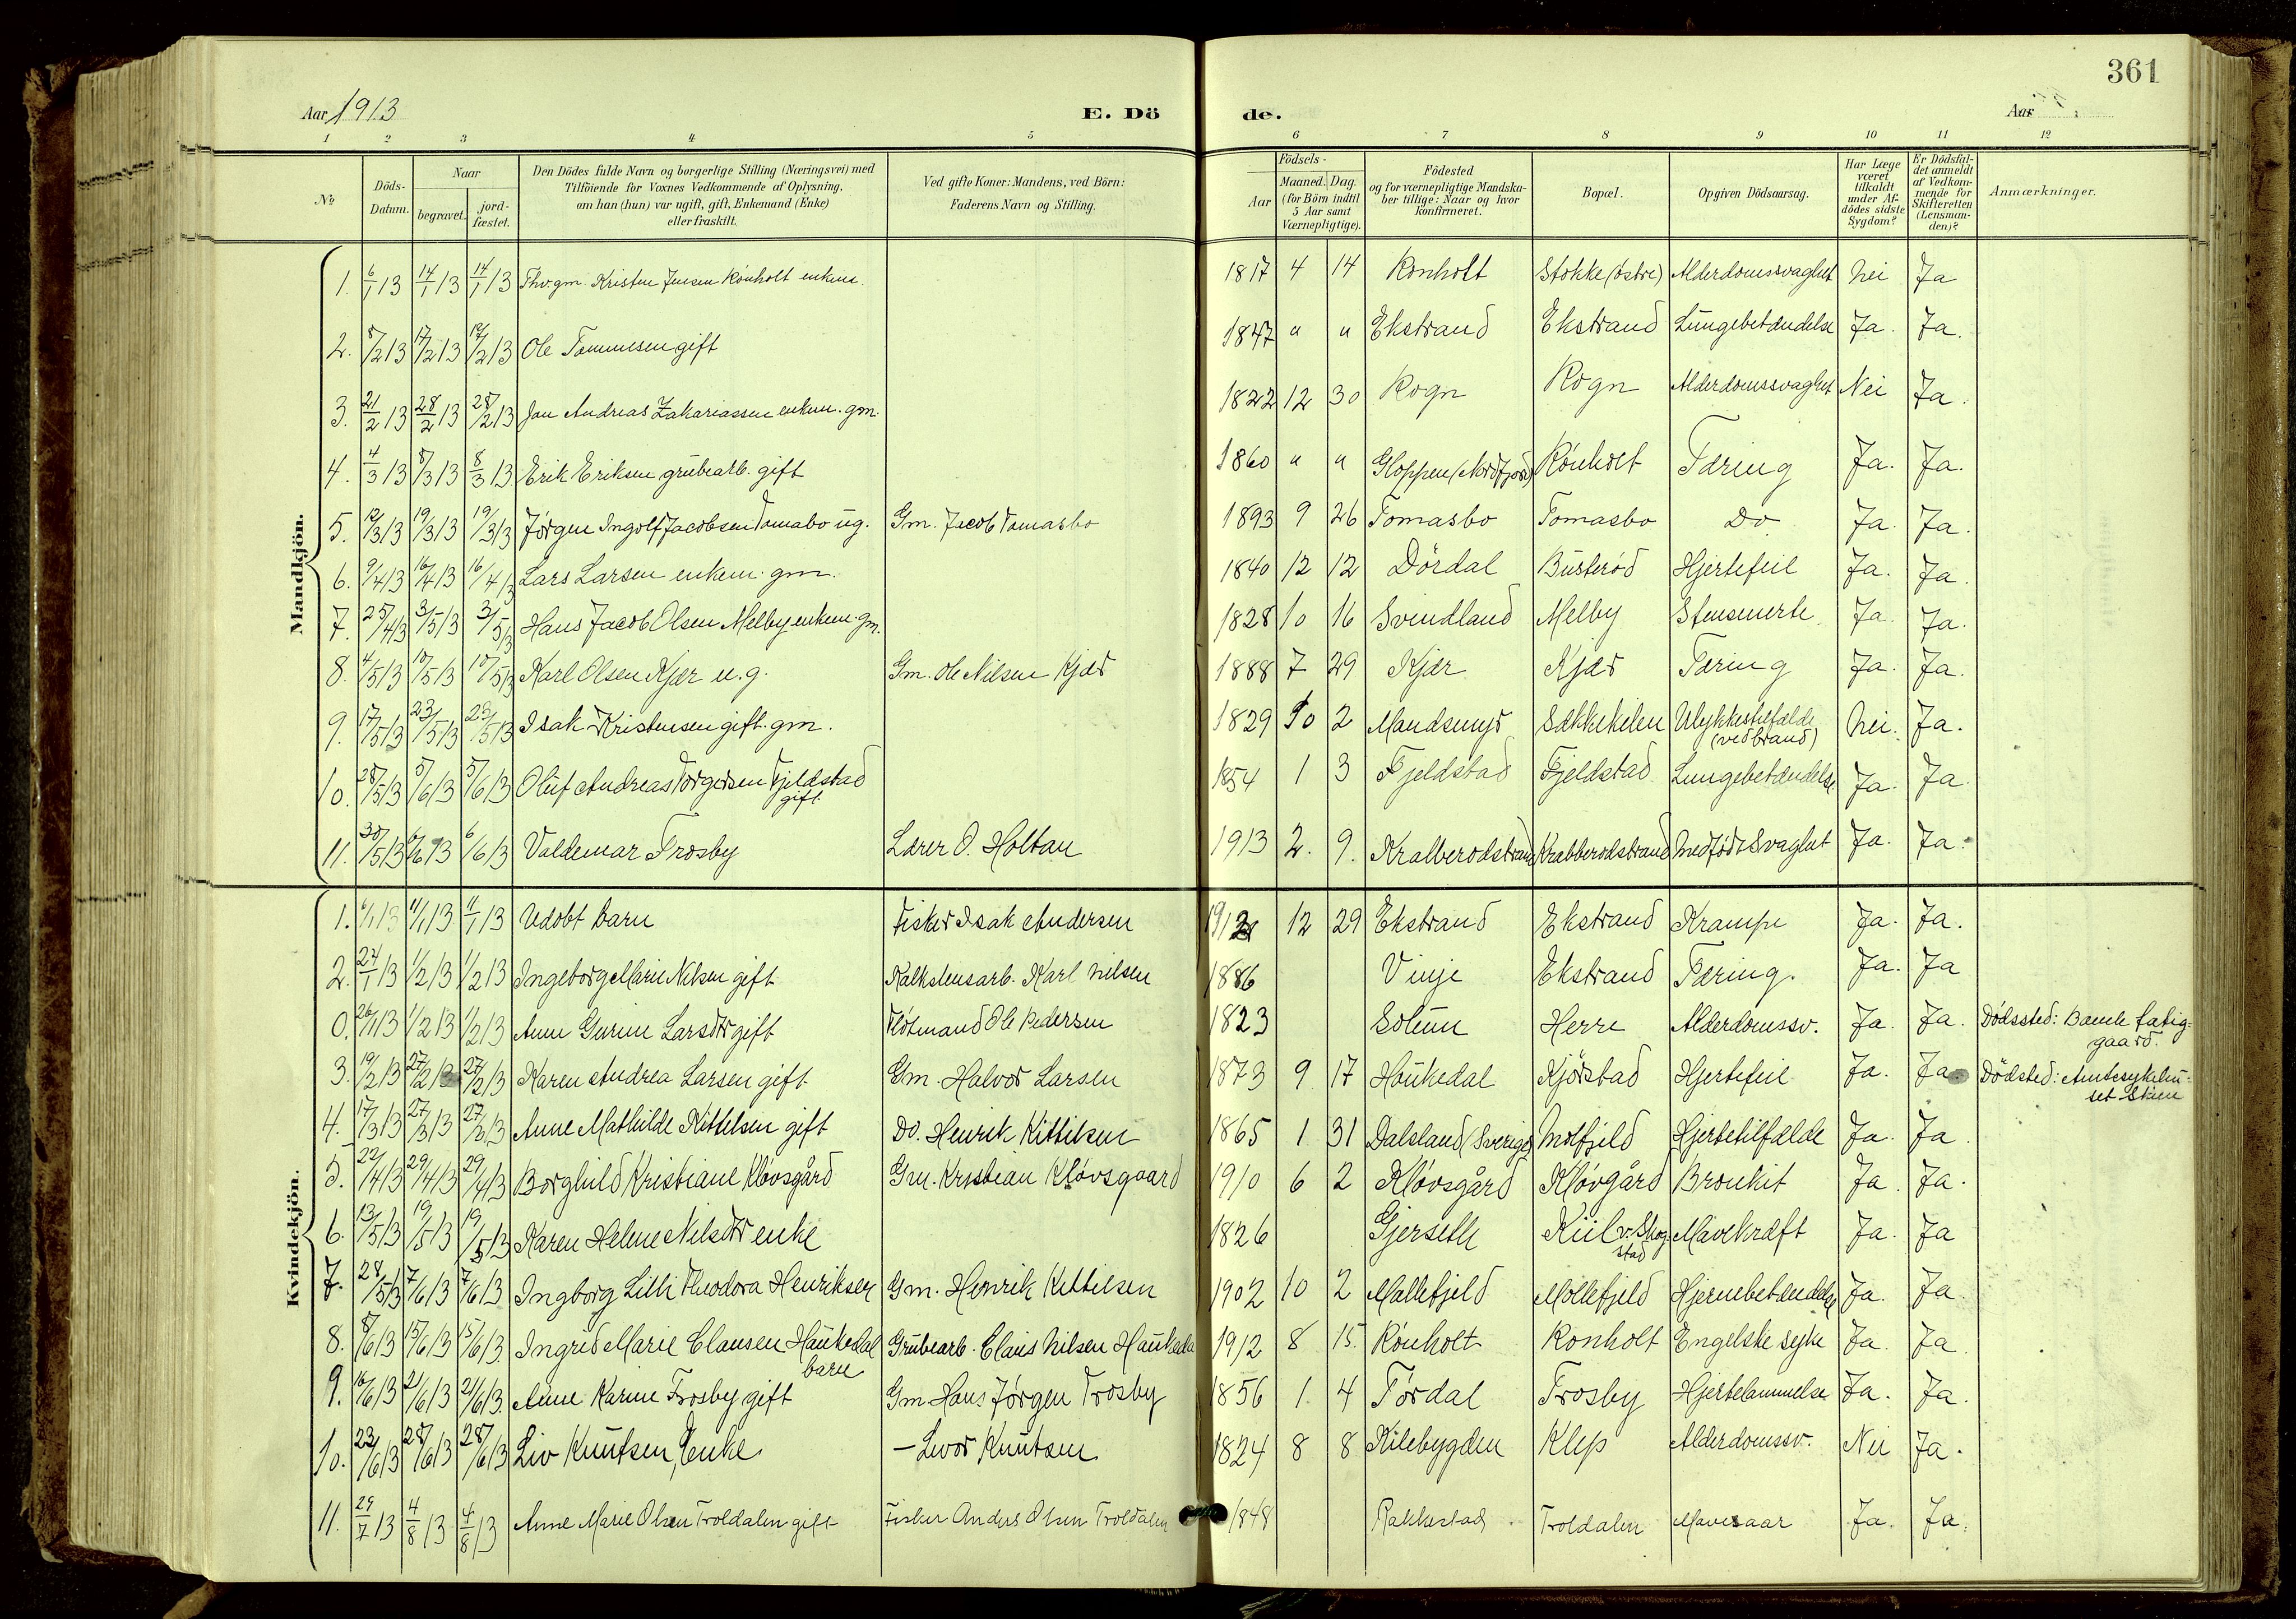 361
Aar 1913
E. Dö
de.
Aar
1 2 3 4 5 6 7 8 9 10 11 12
№
Döds-Datum.
Naar
begravet.
jord-fæstet.
Den Dödes fulde Navn og borgerlige Stilling (Næringsvei) med
Tilföiende for Voxnes Vedkommende af Oplysning,
om han (hun) var ugift, gift, Enkemand (Enke)
eller fraskilt.
Ved gifte Koner: Mandens, ved Börn:
Faderens Navn og Stilling.
Födsels-
Aar
Maaned. Dag.
(for Börn indtil
5 Aar samt
Værnepligtige).
Födested
og for værnepligtige Mandska-
ber tillige: Naar og hvor
konfirmeret.
Bopæl.
Opgiven Dödsaarsag.
Har Læge
været
tilkaldt
under Af-
dödes sidste
Sygdom?
Er Dödsfal-
det anmeldt
af Vedkom-
mende for
Skifteretten
(Lensman-
den)?
Anmærkninger.
Mandkjön.
1. 6/1 13 14/1 13 14/1 13 Fhv. gm. Kristen Jensen Rönholt enkem. 1817 4 14 Rönholt Stokke (östre) Alderdomssvaghet Nei Ja
2. 8/2 13 17/2 13 17/2 13 Ole Tommesen gift 1847 " " Ekstrand Ekstrand Lungebetændelse Ja. Ja.
3. 21/2 13 28/2 13 28/2 13 Jan Andreas Zakariassen enkem. gm. 1822 12 30 Rogn Rogn Alderdomssvaghet Nei Ja.
4. 4/3 13 8/3 13 8/3 13 Erik Eriksen grubearb. gift 1860 " " Gloppen (Nordfjord) Rönholt Tæring Ja. Ja.
5. 12/3 13 19/3 13 19/3 13 Jørgen Ingolf Jacobsen Tomasbo ug. Gm. Jacob Tomasbo 1893 9 26 Tomasbo Tomasbo Do Ja. Ja.
6. 9/4 13 16/4 13 16/4 13 Lars Larsen enkem. gm. 1840 12 12 Dördal Busterød Hjertefeil Ja. Ja.
7. 25/4 13 3/5 13 3/5 13 Hans Jacob Olsen Melby enkem. gm. 1828 10 16 Svindland Melby Stensmerte Ja. Ja.
8. 4/5 13 10/5 13 10/5 13 Karl Olsen Kjær u.g. Gm. Ole Nilsen Kjær 1888 7 29 Kjær Kjær Tæring Ja. Ja.
9. 17/5 13 23/5 13 23/5 13 Isak Kristensen gift. gm. 1829 10 2 Mandsmyr Sækkekilen Ulykkestilfælde Nei. Ja.
(ved brand)
10. 28/5 13 5/6 13 5/6 13 Oluf Andreas Torgersen Fjeldstad 1854 1 3 Fjeldstad Fjeldstad Lungebetændelse Ja. Ja.
gift
11. 30/5 13 6/6 13 6/6 13 Valdemar Trosby Lærer O. Holtan 1913 2. 9. Kralberodstrand Krabberodstrand Medfødt Svaghet Ja. Ja.
Kvindekjön.
1. 6/1 13 11/1 13 11/1 13 Udöbt barn Fisker Isak Andersen 1912 12 29 Ekstrand Ekstrand Krampe Ja. Ja.
2. 24/1 13 1/2 13 1/2 13 Ingeborg Marie Nilsen gift Kalkstensarb. Karl Nilsen 1886 Vinje Ekstrand Tæring. Ja. Ja
0. 26/1 13 1/2 13 1/2 13 Anne Gurine Larsdtr gift Flötmand Ole Pedersen 1823 Solum Herre Alderdomssv. Ja. Ja. Dödssted: Bamle fatig-
gaard.
3. 19/2 13 27/2 13 27/2 13 Karen Andrea Larsen gift Gm. Halvor Larsen 1873 9 17 Haukedal Kjörstad Hjertefeil Ja. Ja. Dödsted: Amtssykehu-
set Skien
4. 17/3 13 27/3 13 27/3 13 Anne Mathilde Kittelsen gift Do. Henrik Kittilsen 1865 1 31 Dalsland (Sverige) Molfjeld Hjertetilfælde Ja. Ja.
5. 22/4 13 29/4 13 29/4 13 Borghild Kristiane Klövsgård Gm. Kristian Klövsgaard 1910 6 2 Klövsgård Klövgård Bronkit Ja. Ja.
6. 13/5 13 19/5 13 19/5 13 Karen Helene Nilsdtr enke 1826 Gjerseth Kiil v. Skog- Mavekræft Ja. Ja
stad
7. 28/5 13 7/6 13 7/6 13 Ingborg Lilli Theodora Henriksen Gm. Henrik Kittilsen 1902 10 2 Mallefjeld Mollefjeld Hjernebetændelse Ja. Ja
8. 8/6 13 15/6 13 15/6 13. Ingrid Marie Clausen Haukedal Grubearb. Claus Nilsen Haukedal 1912 8 15. Rönholt Rönholt Engelske syke Ja. Ja
barn
9. 16/6 13 21/6 13 21/6 13. Anne Karine Trosby gift Gm. Hans Jörgen Trosby 1856 1. 4 Tördal Trosby Hjertelammelse Ja. Ja.
10. 23/6 13 28/6 13 28/6 13 Liv Knutsen, Enke — Levor Knutsen 1824 8 8 Kilebygden Klep Alderdomssv. Nei Ja.
11. 29/7 13 4/8 13 4/8 13 Anne Marie Olsen Troldalen gift Fisker Anders Olsen Troldalen 1848 Rakkestad Troldalen Mavesaar Ja. Ja.